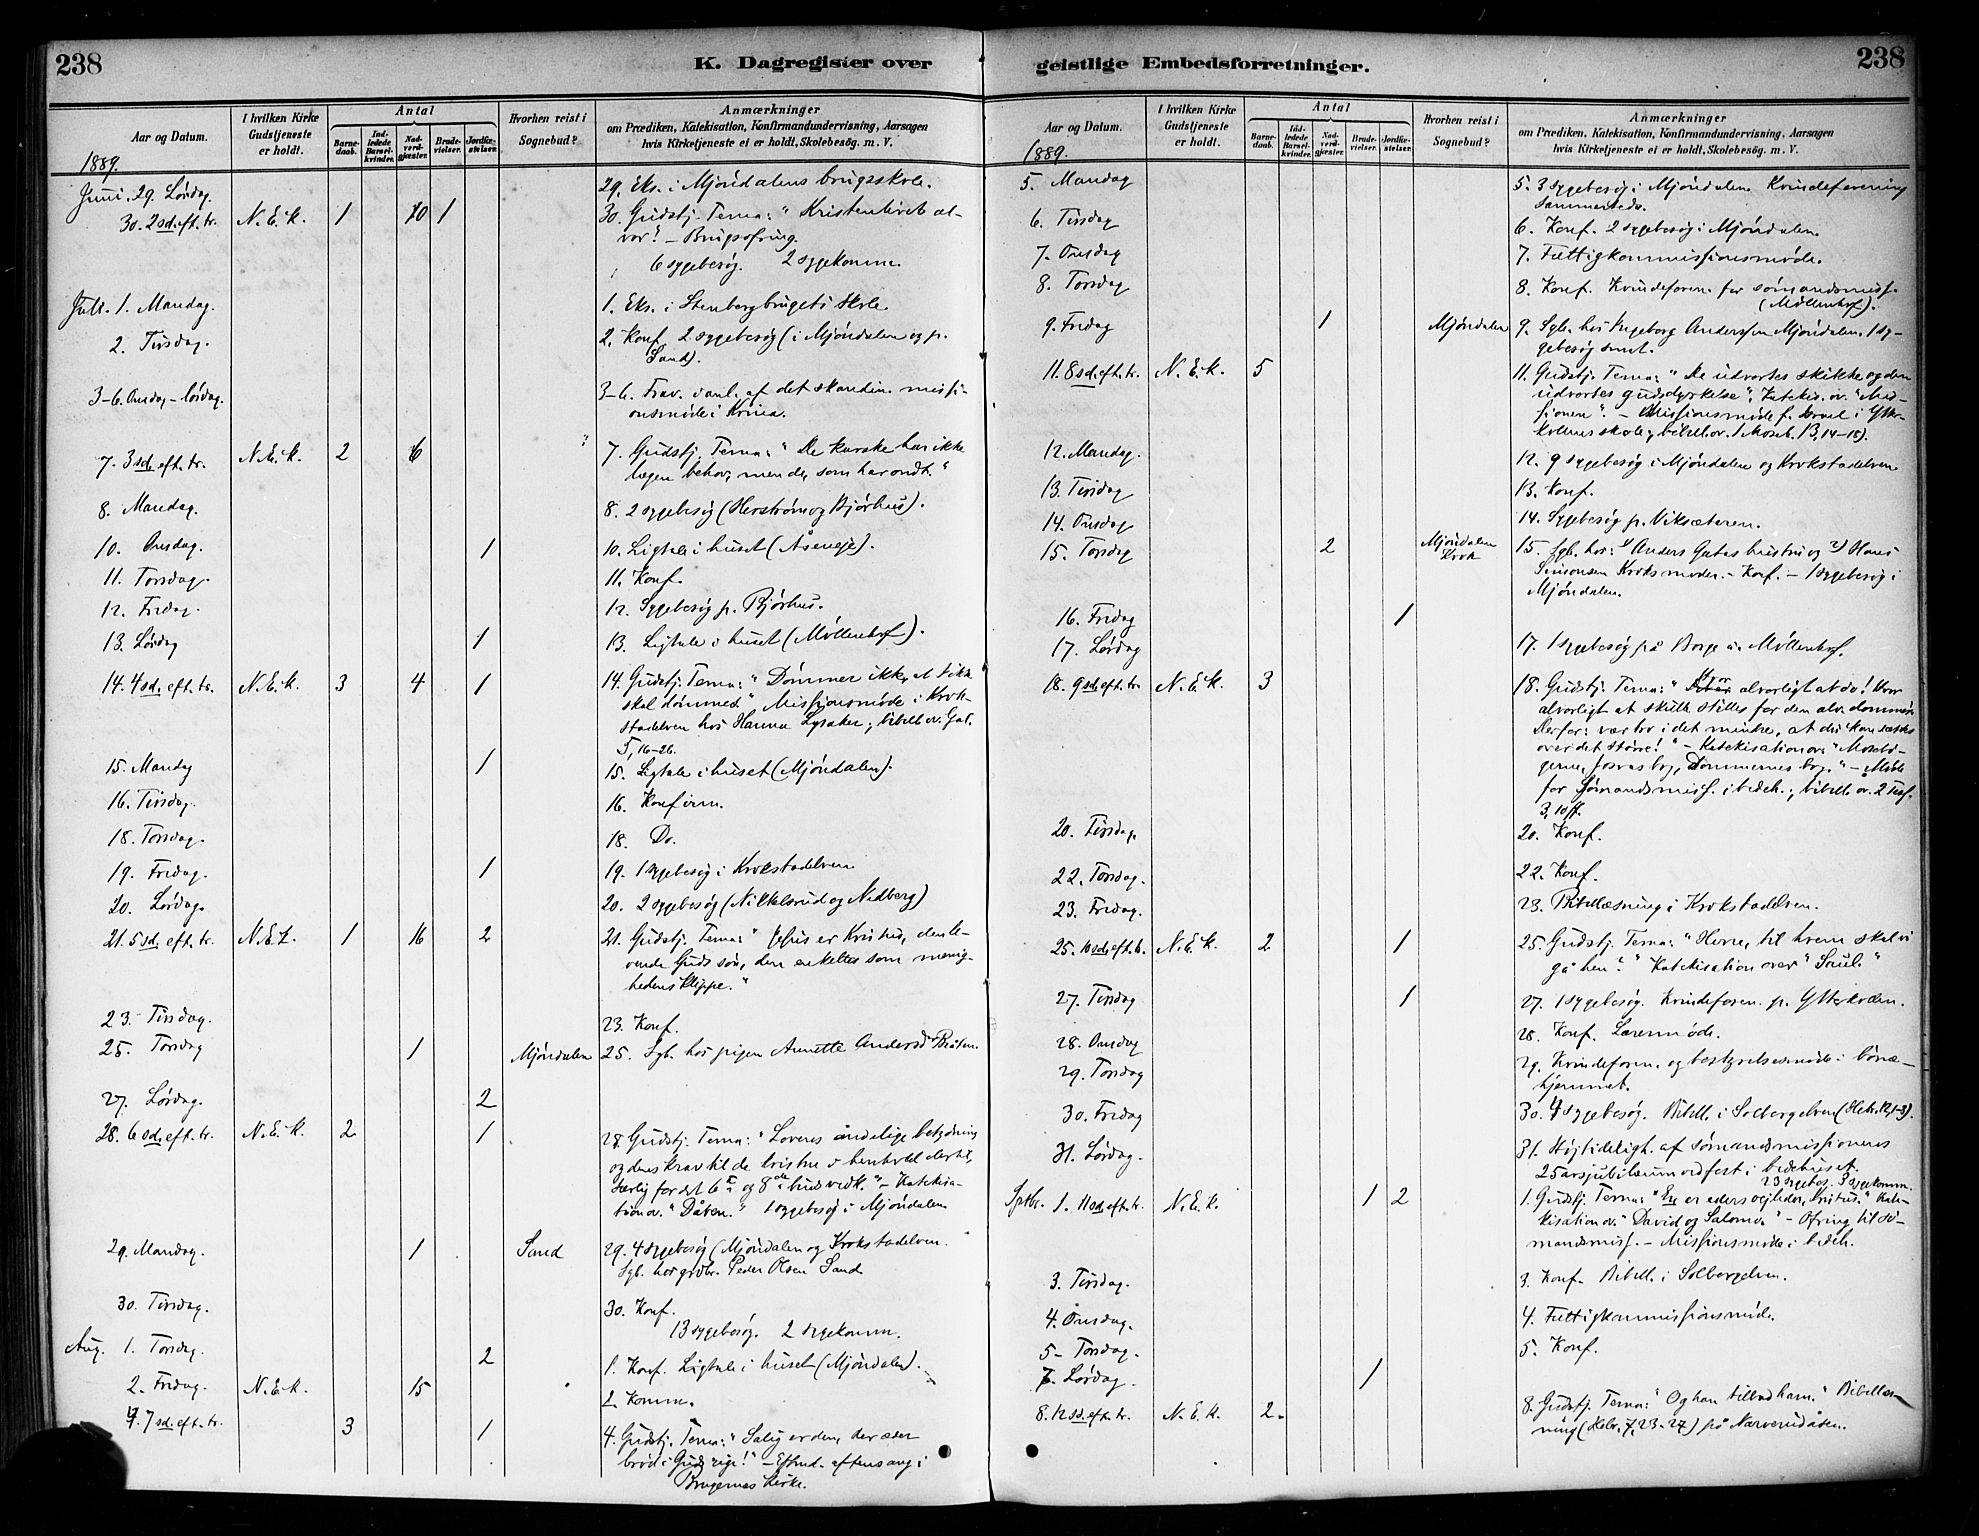 238
K. Dagregister over
Aar og Datum.
I hvilken Kirke Gudstjeneste er holdt.
Antal
Barnedaab.
Indledede Barselkvinder.
Nadverdgjæster.
Brudevielser.
Jordfæstelser.
Hvorhen reist i Sognebud?
Anmærkninger
om Prædiken, Katekisation, Konfirmandundervisning, Aarsagen
hvis Kirketjeneste ei er holdt, Skolebesøg. m. V.
1889.
Juni. 29. Lørdag. 29. Eks. i Mjøndalens brugsskole.
30. 2 sd. eft. tr. N. E. k. 1 10 1 30. Gudstj. Tema: "Kristenlivets al-
vor". - Brugsofring.
6 sygebesøg. 2 sygekomm.
Juli. 1. Mandag. 1. Eks. i Stenbergbrugets skole
2. Tirsdag. 2. Konf. 2 sygebesøg (i Mjøndalen og p.
Sand).
3-6. Onsdag - lørdag. 3-6. Frav. af det skandin. missi-
onsmøde i Kria.
7. 3 sd. eft. tr. N. E. k. 2 6 7. Gudstj. Tema: "De karske har ikke
lægen behov, men de, som har ondt."
8. Mandag. 8. 2 sygebesøg (Herstrøm og Bjørhus).
10. Onsdag. 1 10. Ligtale i huset (Åseneje).
11. Torsdag. 11. Konf.
12. Fredag. 12. Sygebesøg p. Bjørhus.
13. Lørdag 1 13. Ligtale i huset (Møllenhof).
14. 4 sd. eft. tr. N. E. k. 3 4 1 14. Gudstj. Tema: "Dømmer ikke, at I ikke
skal dømmes." Missionsmøde i Krok-
stadelven hos Hanna Lysaker; bibell. ov. Gal.
5, 16-26.
15. Mandag 1 15. Ligtale i huset (Mjøndalen).
16. Tirsdag. 16. Konfirm.
18. Torsdag. 18. Do.
19. Fredag. 1 19. 1 sygebesøg i Krokstadelven
20. Lørdag. 20. 2 sygebesøg (Nikkelsrud og Nedberg)
21. 5 sd. eft. tr. N. E. k. 1 16 2 21. Gudstj. Tema: "Jesus er Kristus, den le-
vende Guds søn, den enkeltes som menig-
hedens klippe."
23. Tirsdag. 23. Konf.
25. Torsdag 1 Mjøndalen 25. Sgb. hos pigen Anette Andersd. Bråten.
27. Lørdag. 2
28. 6 sd. eft. tr. N. E. k. 2 1 28. Gudstj. Tema: "Lovens åndelige betydning
og dens krav til de kristne i henhold dertil,
særlig for det 6te og 8de buds vedk." - Katekisa-
tion ov. "Dåben." 1 sygebesøg i Mjøndalen
29. Mandag. 1 Sand 29. 4 sygebesøg (Mjøndalen og Krokstadelven.
Sgb. hos grdbr. Peder Olsen Sand
30. Tirsdag. 30. Konf.
13 sygebesøg. 2 sygekomm.
Aug. 1. Torsdag. 2 1. Konf. Ligtale i huset (Mjøndalen).
2. Fredag. N. E. k. 15 2. Komm.
4. 7 sd. eft. tr. 3 1 4. Gudstj. Tema: "Salig er den, der æder
brød i Guds rige!" - Eftmd. aftensang i
Bragernes kirke.
geistlige Embedsforretninger.
238
Aar og Datum.
I hvilken Kirke Gudstjeneste er holdt.
Antal
Barnedaab.
Indledede Barselkvinder.
Nadverdgjæster.
Brudevielser.
Jordfæstelser.
Hvorhen reist i Sognebud?
Anmærkninger
om Prædiken, Katekisation, Konfirmandundervisning, Aarsagen
hvis Kirketjeneste ei er holdt, Skolebesøg. m. V.
1889.
5. Mandag 5. 3 sygebesøg i Mjøndalen. Kvindeforening
sammesteds.
6. Tirsdag 6. Konf. 2 sygebesøg i Mjøndalen.
7. Onsdag 7. Fattigkommissionsmøde.
8. Torsdag 8. Konf. Kvindeforen. for sømandsmiss.
(Møllenhof).
9. Fredag 1 Mjøndalen 9. Sgb. hos Ingeborg Anderssen Mjøndalen. 1 sy-
gebesøg smst.
11. 8 sd. eft. tr. N. E. k. 5 11. Gudstj. Tema: "De udvortes skikke og den
udvortes gudsdyrkelse". Katekis. ov. "Mis-
sionen". - Missionsmøde f. Israel i Ytter-
kollens skole; bibell. ov. 1 Moseb. 13, 14-18).
12. Mandag. 12. 9 sygebesøg i Mjøndalen og Krokstadelven
13. Tirsdag 13. Konf.
14. Onsdag 14. Sygebesøg p. Viksæteren.
15. Torsdag 2 Mjøndalen Krok 15. Sgb. hos: 1) Anders hustru og 2) Hans
Simonsen Kroks moder. - Konf. - 1 sygebesøg i
Mjøndalen.
16. Fredag 1
17. Lørdag 17. 1 sygebesøg på Borge a. Møllenhof.
18. 9 sd. eft. tr. N. E. k. 3 18. Gudstj. Tema: "Hvor alvorligt at dø! Hvor
alvorligt at skulle stilles for den alv. dommer!
Derfor: vær tro i det mindre, at du kan sættes
over det større!" - Katekisation ov. "Mosebø-
gerne, Josvas bog, Dommernes bog." - Møde
for Sømandsmiss. i bedeh.; bibell. ov. 2 Tess.
3, 10ff.
20. Tirsdag. 20. Konf.
22. Torsdag. 22. Konf.
23. Fredag. 23. Bibellæsning i Krokstadelven.
25. 10 sd. eft. tr. N. E. k. 2 1 25. Gudstj. Tema: "Herre, til hvem skal vi
gå hen?" Katekisation over "Saul."
27. Tirsdag 1 27. 1 sygebesøg. Kvindeforen. p. Ytterkollen.
28. Onsdag 28. Konf. Læremøde.
29. Torsdag 29. Kvindeforen. og bestyrelsesmøde i børne-
hjemmet.
30. Fredag 30. 4 sygebesøg. Bibell. i Solbergelven (Hebr. 12, 1-3).
31. Lørdag. 31. Højtideligh. af sømandsmissionens
25 årsjubilæum vedfest i bedehuset.
23 sygebes. 3 sygekomm.
Septbr. 1. 11 sd. eft. tr. N. E. k. 1 2 1. Gudstj. Tema: "En er eders vejleder, Kristus." Kate-
kisation ov. "David og Salomo." - Ofring til sø-
mandsmiss. - Missionsmøde i bedeh.
3. Tirsdag. 3. Konf. Bibell. i Solbergelven.
4. Onsdag. 4. Fattigkommissionsmøde.
5. Torsdag. 5. Konf.
7. Lørdag. 1
8. 12 sd. eft. tr. N. E. k. 2. 8. Gudstj. Tema: "Og han tilbad ham." Bibellæs-
ning (Hebr. 7, 23-27) på Narverudåsen.